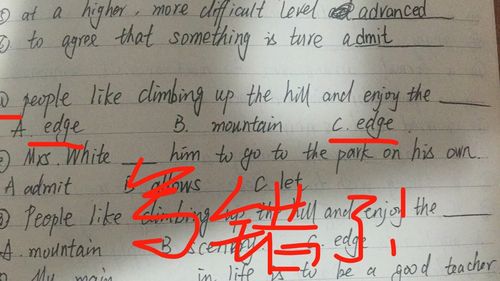 ⑤ at a higher, more difficult level advanced
to agree that something is ture admit
① people like climbing up the hill and enjoy the ____
A. edge B. mountain C. edge
② Mrs. White ___ him to go to the park on his own.
A admit B allows C let
③ People like climbing up the hill and enjoy the ____
A. mountain B scenery C. edge
My main ____ in life is to be a good teacher
写错了!